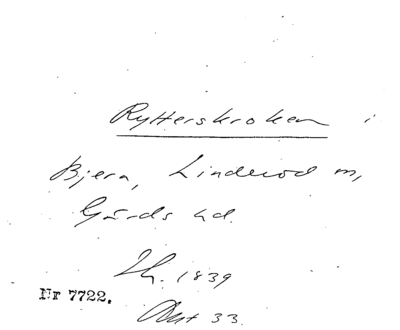 Rytterskroken i
Bjera, Linderöd m,
Gärds hd.
Th. 1839
Nr 7722.
Akt 33.